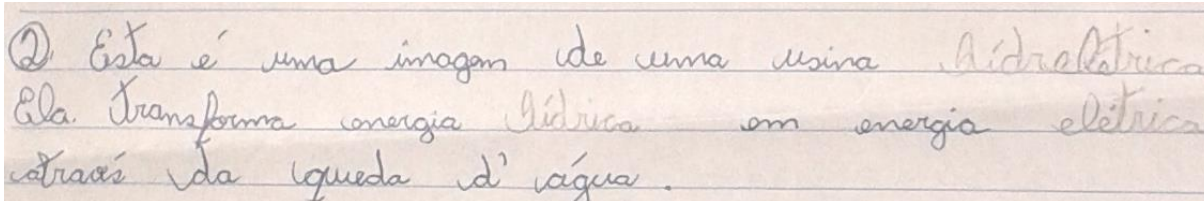 ② Esta é uma imagem de uma usina hídrelétrica
Ela transforma energia hídrica em energia elétrica
através da queda d' água.